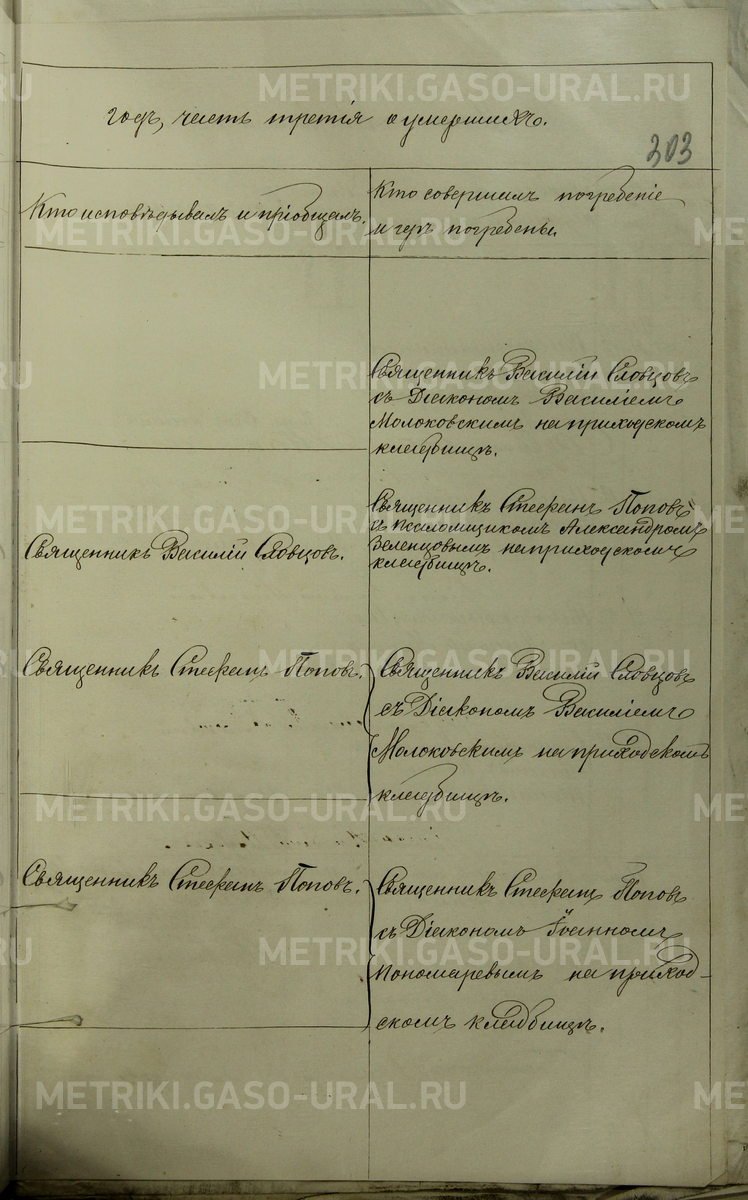 годъ, часть третія о умершихъ.
303
Кто исповѣдывалъ и пріобщалъ.
Кто совершалъ погребеніе
и гдѣ погребены.
Священникъ Василій Словцовъ
съ Діакономъ Василіемъ
Молоковскимъ на приходскомъ
кладбищѣ.
Священникъ Василій Словцовъ.
Священникъ Стефанъ Поповъ
съ псаломщикомъ Александромъ
Зеленцовымъ на приходскомъ
кладбищѣ.
Священникъ Стефанъ Поповъ.
Священникъ Василій Словцовъ
съ Діакономъ Василіемъ
Молоковскимъ на приходскомъ
кладбищѣ.
Священникъ Стефанъ Поповъ.
Священникъ Стефанъ Поповъ
съ Діакономъ Іоанномъ
Пономаревымъ на приход-
скомъ кладбищѣ.
METRIKI.GASO-URAL.RU